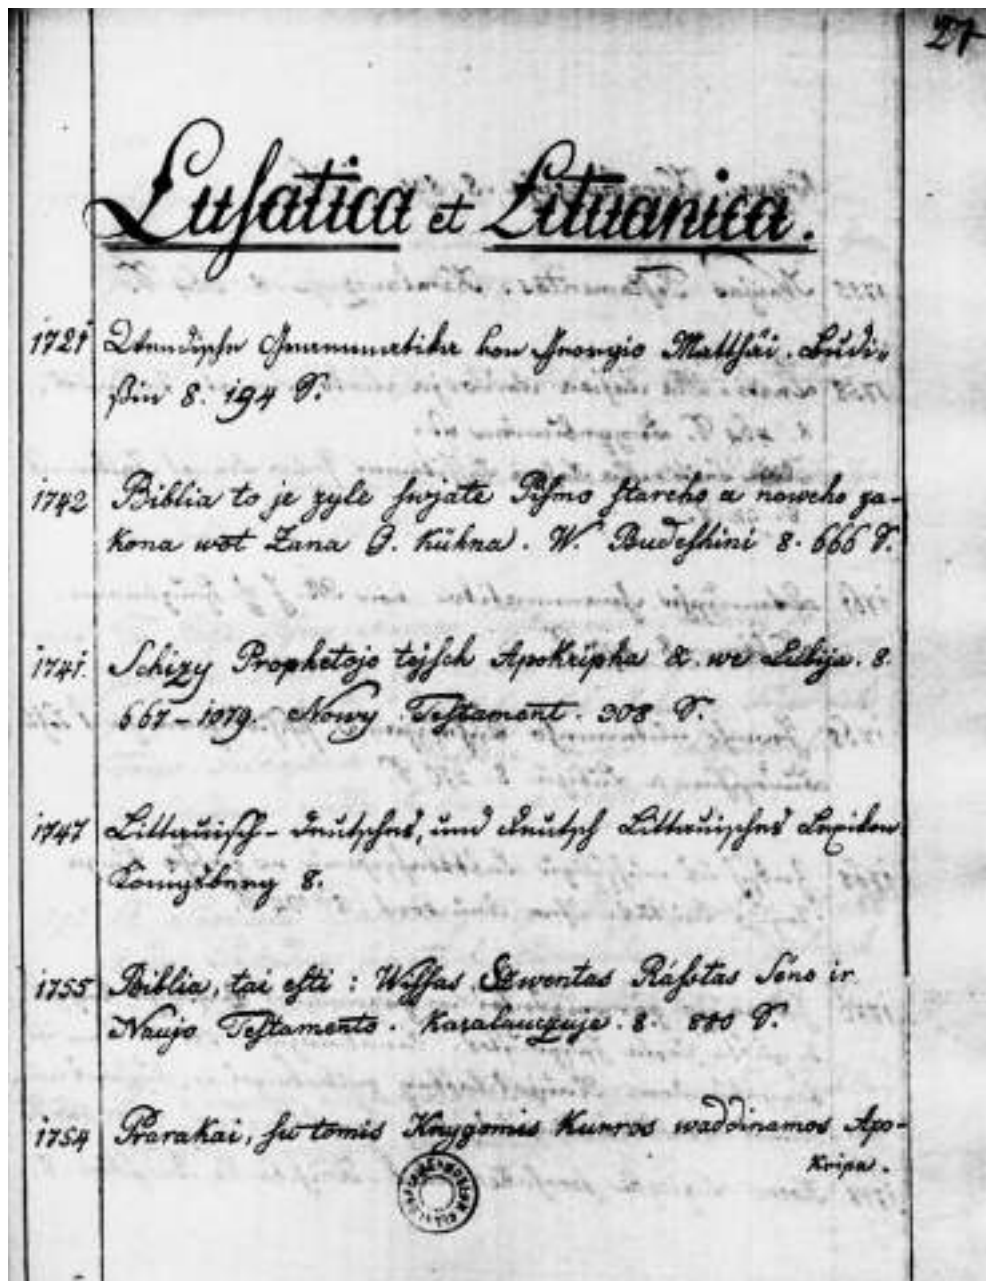 27
Lusatica et Lituanica.
1721 Wendische Grammatika von Georgio Matthäi. Budi-
ßin 8. 194 S.
1742 Biblia to je zyle swjate Pismo stareho a noweho za-
kona wot Zana G. Kühna. W. Budeshini 8. 666 S.
1741. Schizy Prophetojo tejsch Apokripha &. we Lubiju. 8.
667-1079. Nowy Testament. 308. S.
1747 Littauisch-Deutsches, und deutsch Littauisches Lexikon
Königsberg 8.
1755 Biblia, tai esti: Wissas Szwentas Rásstas Séno ir
Naujo Testamento. Karalauczuje. 8. 880 S.
1754 Prarakai, su tomis Knygomis Kurros waddinamos Apo-
Kripa.